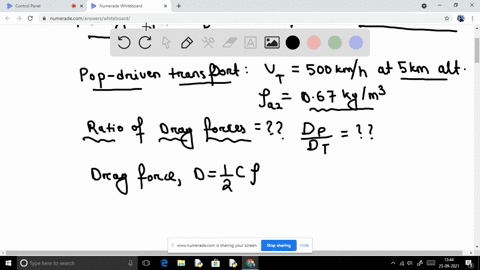 Control Panel
Numerade Whiteboard
numerade.com/answers/whiteboard/
Pop-driven transport: V_T = 500 km/h at 5 km alt.
ρ_a2 = 0.67 kg/m³
Ratio of Drag forces = ?? D_P/D_T = ??
Drag force, D = 1/2 C ρ
www.numerade.com is sharing your screen.
Stop sharing
Hide
Type here to search
ENG
13:44
25-09-2021